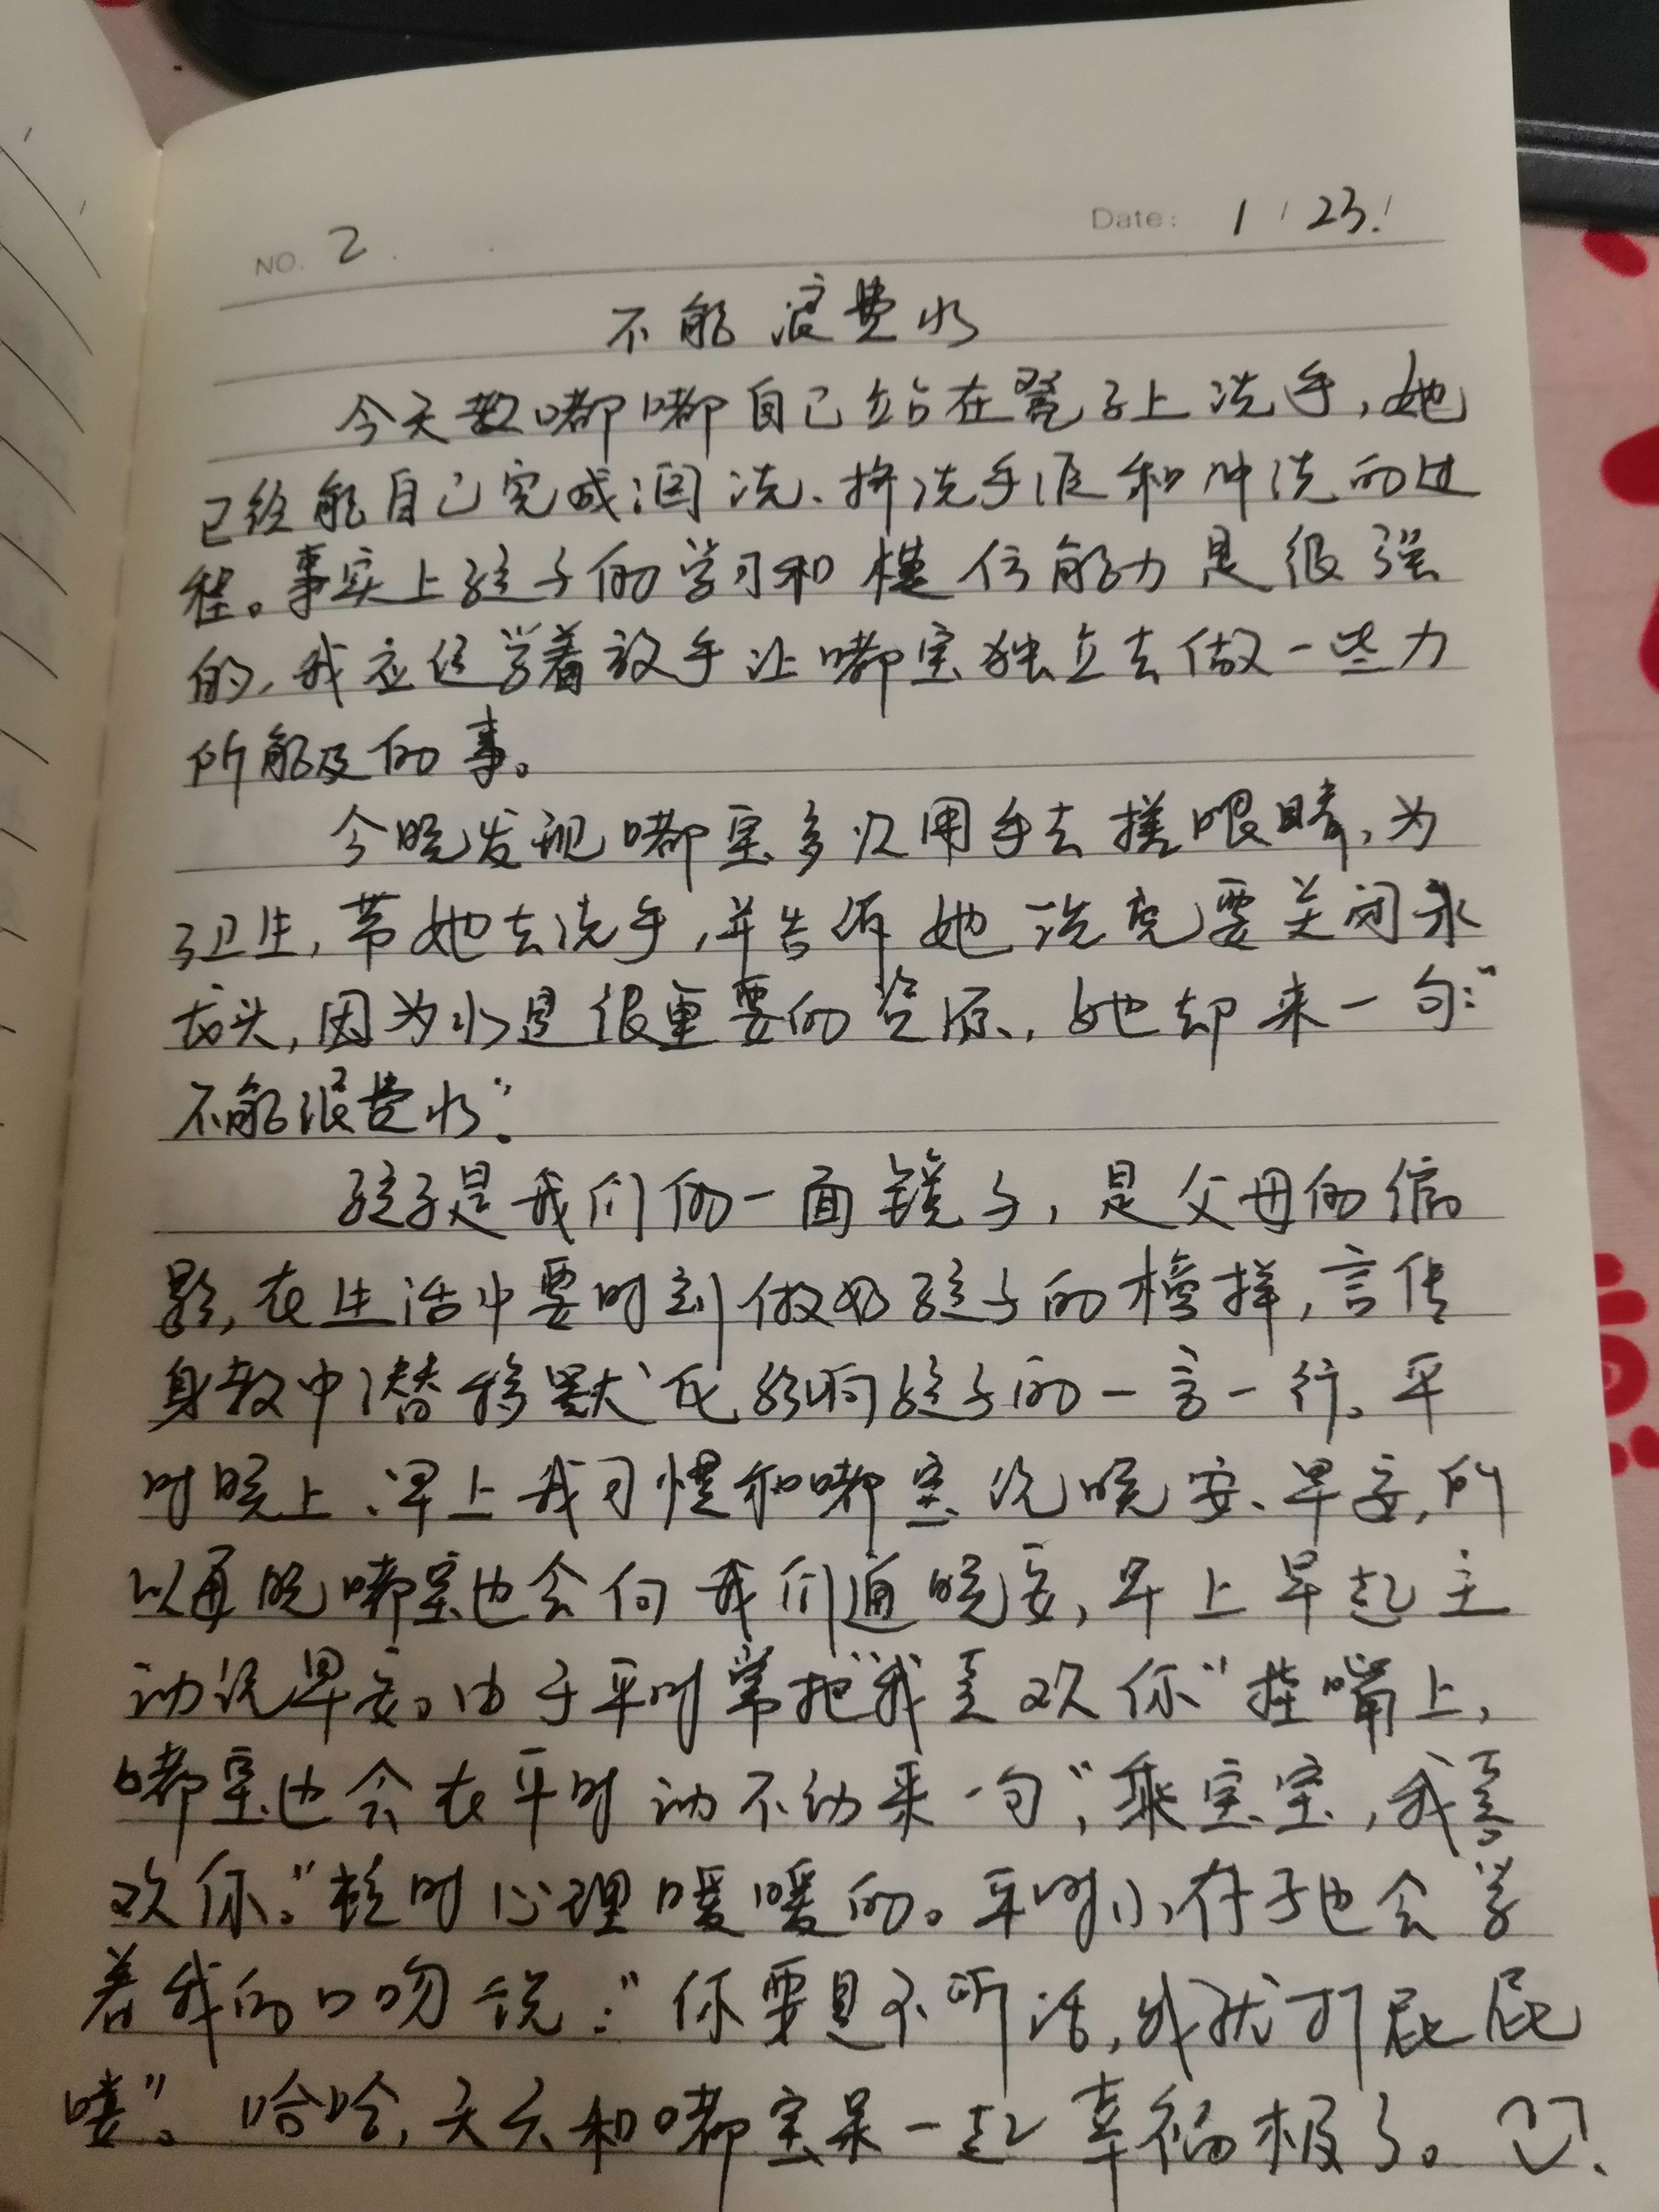 NO. 2
Date: 1 / 23 /
不能浪费水
今天教嘟嘟自己站在凳子上洗手，她
已经能自己完成洗、挤洗手液和冲洗的过
程。事实上孩子的学习和模仿能力是很强
的，我应该学着放手让嘟宝独立去做一些力
所能及的事。
今晚发现嘟宝多次用手去搓眼睛，为
了卫生，带她去洗手，并告诉她洗完要关闭水
龙头，因为水是很重要的资源，她却来一句：“
不能浪费水”.
孩子是我们的一面镜子，是父母的缩
影，在生活中要时刻做好孩子的榜样，言传
身教中潜移默化影响孩子的一言一行。平
时晚上、早上我习惯和嘟宝说晚安、早安，所
以每晚嘟宝也会向我们道晚安，早上早起主
动说早安。由于平时常把“我喜欢你”挂嘴上，
嘟宝也会在平时动不动来一句，“乖宝宝，我喜
欢你。”顿时心理暖暖的。平时小存子也会学
着我的口吻说：“你要是不听话，我就打屁屁
喽”。哈哈，天天和嘟宝呆一起幸福极了。